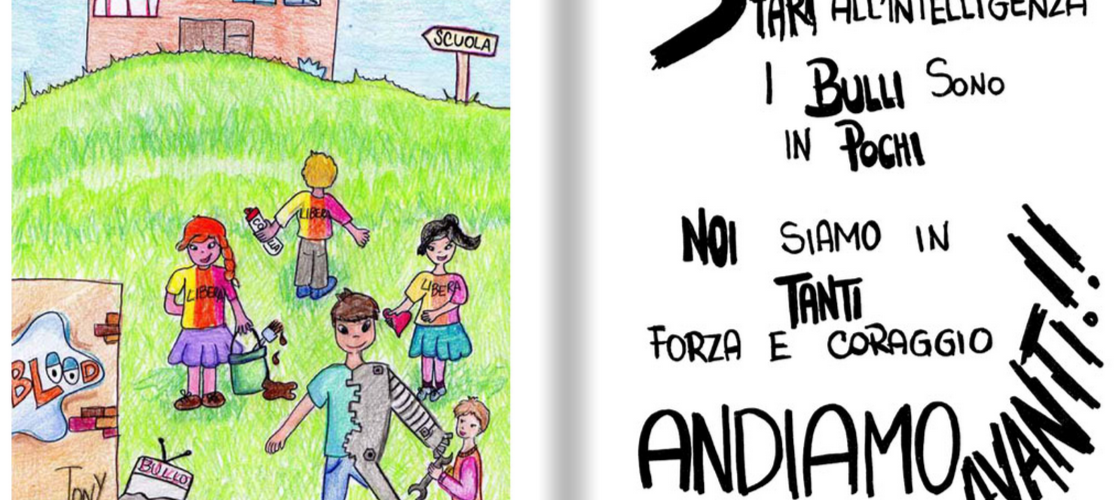 SCUOLA
LIBERA
LIBERA
LIBERA
BLOOD
BULLO
TONY
ALL'INTELLIGENZA
I BULLI SONO
IN POCHI
NOI SIAMO IN
TANTI
FORZA E CORAGGIO
ANDIAMO
AVANTI!!